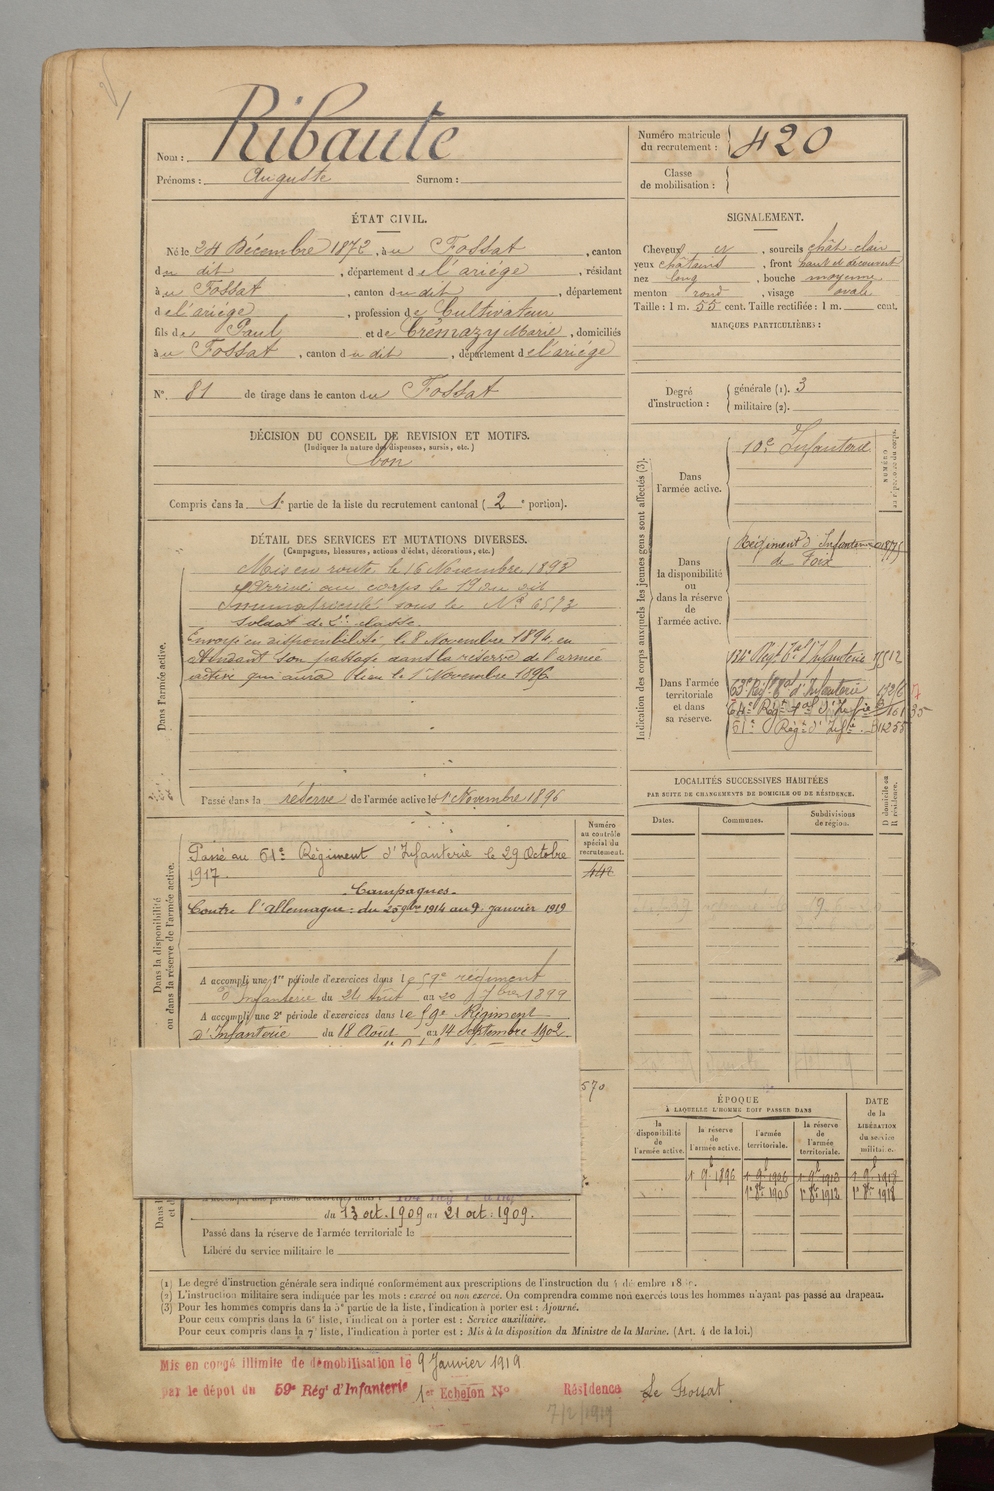 Ribaute
Nom :
Prénoms : Auguste Surnom :
Numéro matricule du recrutement : 420
Classe de mobilisation :
ÉTAT CIVIL.
Né le 24 Décembre 1872, à u Fossat, canton
du dit, département de l'ariége, résidant
à u Fossat, canton du dit, département
de l'ariége, profession de Cultivateur
fils de Paul et de Crémazy Marie, domiciliés
à u Fossat, canton du dit, département de l'ariége
N° 81 de tirage dans le canton du Fossat
SIGNALEMENT.
Cheveux et, sourcils chât. clair
yeux châtains, front haut et découvert
nez long, bouche moyenne
menton rond, visage ovale
Taille : 1 m. 55 cent. Taille rectifiée : 1 m. cent.
MARQUES PARTICULIÈRES :
Degré d'instruction : générale (1). 3
militaire (2).
DÉCISION DU CONSEIL DE REVISION ET MOTIFS.
(Indiquer la nature des dispenses, sursis, etc.)
bon
Compris dans la 1e partie de la liste du recrutement cantonal (2e portion).
DÉTAIL DES SERVICES ET MUTATIONS DIVERSES.
(Campagnes, blessures, actions d'éclat, décorations, etc.)
Dans l'armée active.
Mis en route le 16 Novembre 1893
Arrivé au corps le 19 du dit
Immatriculé sous le N° 6573
Soldat de 2e classe.
Envoyé en disponibilité, le 8 Novembre 1894 en
attendant son passage dans la réserve de l'armée
active qui aura lieu le 1er Novembre 1896
Passé dans la réserve de l'armée active le 1er Novembre 1896
Indication des corps auxquels les jeunes gens sont affectés (3).
NUMÉRO au répertoire du corps.
Dans l'armée active.
10e Infanterie
Dans la disponibilité ou dans la réserve de l'armée active.
Régiment d'Infanterie
de Foix
Dans l'armée territoriale et dans sa réserve.
134e Régt Tal d'Infanterie
63e Régt Tal d'Infanterie
64e Régt Tal d'Infie
61e Régt d'Infie
LOCALITÉS SUCCESSIVES HABITÉES
PAR SUITE DE CHANGEMENTS DE DOMICILE OU DE RÉSIDENCE.
D domicile ou R résidence.
Dates. Communes. Subdivisions de région.
Dans la disponibilité ou dans la réserve de l'armée active.
Numéro au contrôle spécial du recrutement.
442
Passé au 61e Régiment d'Infanterie le 29 Octobre
1917.
Campagnes.
Contre l'Allemagne : du 20 9bre 1914 au 9 janvier 1919
A accompli une 1re période d'exercices dans le 59e régiment
d'Infanterie du 24 août au 20 7bre 1899
A accompli une 2e période d'exercices dans le 59e Régiment
d'Infanterie du 18 Août au 14 Septembre 1902
570
du 13 oct. 1909 au 21 oct. 1909.
Passé dans la réserve de l'armée territoriale le
Libéré du service militaire le
ÉPOQUE
À LAQUELLE L'HOMME DOIT PASSER DANS
DATE de la LIBÉRATION du service militaire.
la disponibilité de l'armée active. la réserve de l'armée active. l'armée territoriale. la réserve de l'armée territoriale.
1 9bre 1896 1 9bre 1906 1 9bre 1912 1 9bre 1918
1er 8bre 1906 1er 8bre 1912 1er 8bre 1918
(1) Le degré d'instruction générale sera indiqué conformément aux prescriptions de l'instruction du 4 décembre
(2) L'instruction militaire sera indiquée par les mots : exercé ou non exercé. On comprendra comme non exercés tous les hommes n'ayant pas passé au drapeau.
(3) Pour les hommes compris dans la 5e partie de la liste, l'indication à porter est : Ajourné.
Pour ceux compris dans la 6e liste, l'indication à porter est : Service auxiliaire.
Pour ceux compris dans la 7e liste, l'indication à porter est : Mis à la disposition du Ministre de la Marine. (Art. 4 de la loi.)
Mis en congé illimité de démobilisation le 9 Janvier 1919
par le dépôt du 59e Régt d'Infanterie 1er Echelon N° Résidence Le Fossat
7/2/1919